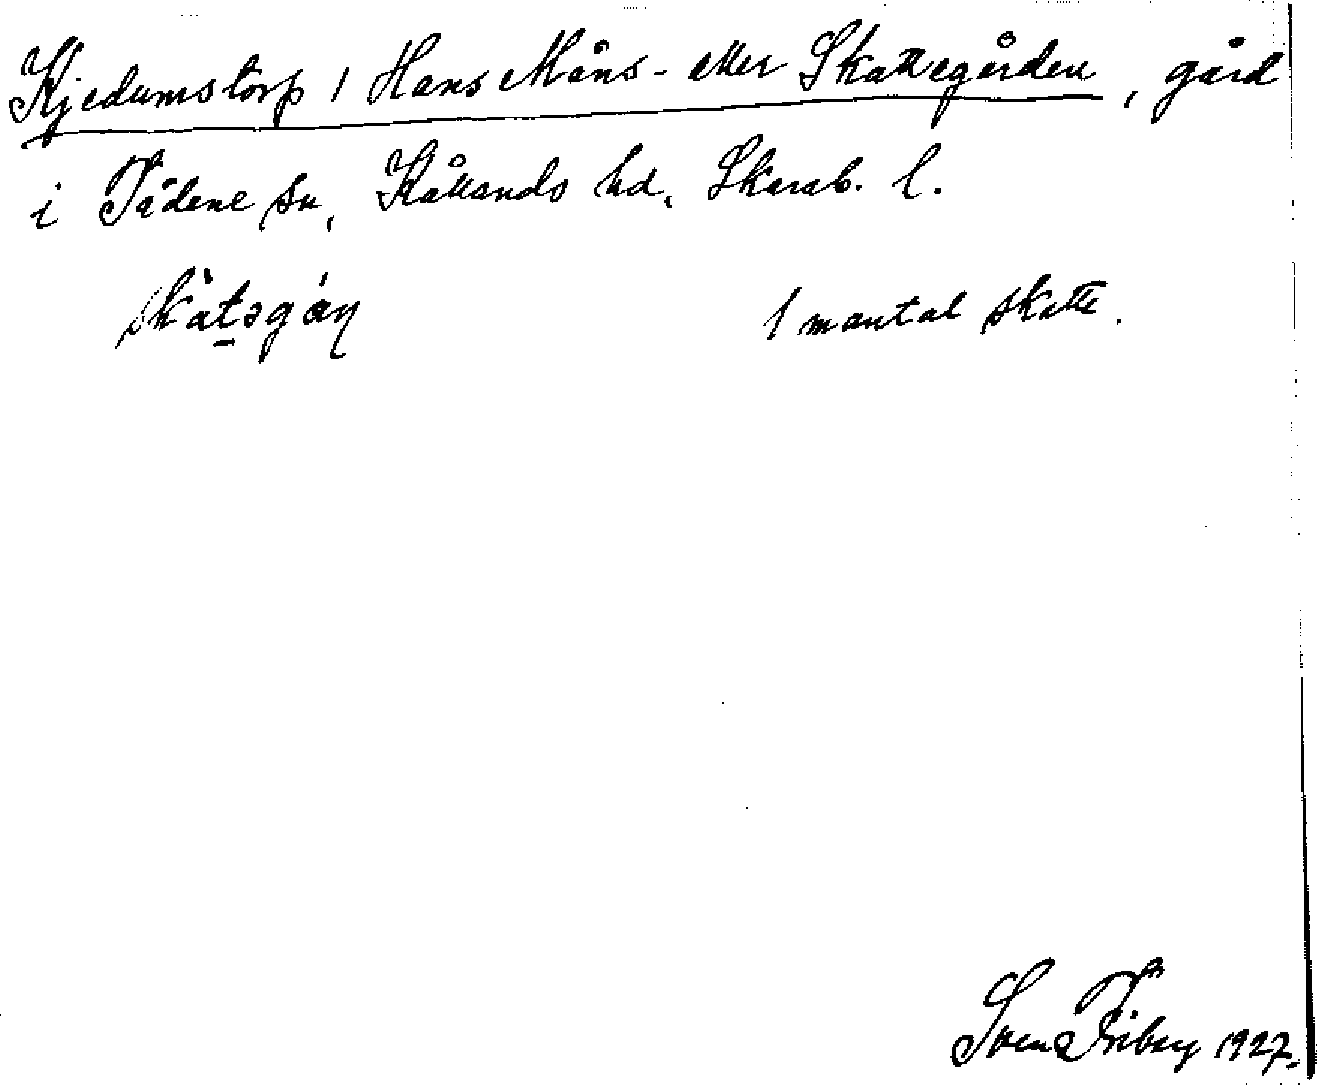 Kjedumstorp 1 Hans Måns- eller Skattegården, gård
i Tådene sn, Kållands hd, Skarab. l.
skàtəgáɳ 1 mantal skatte.
Sven Friberg 1927.